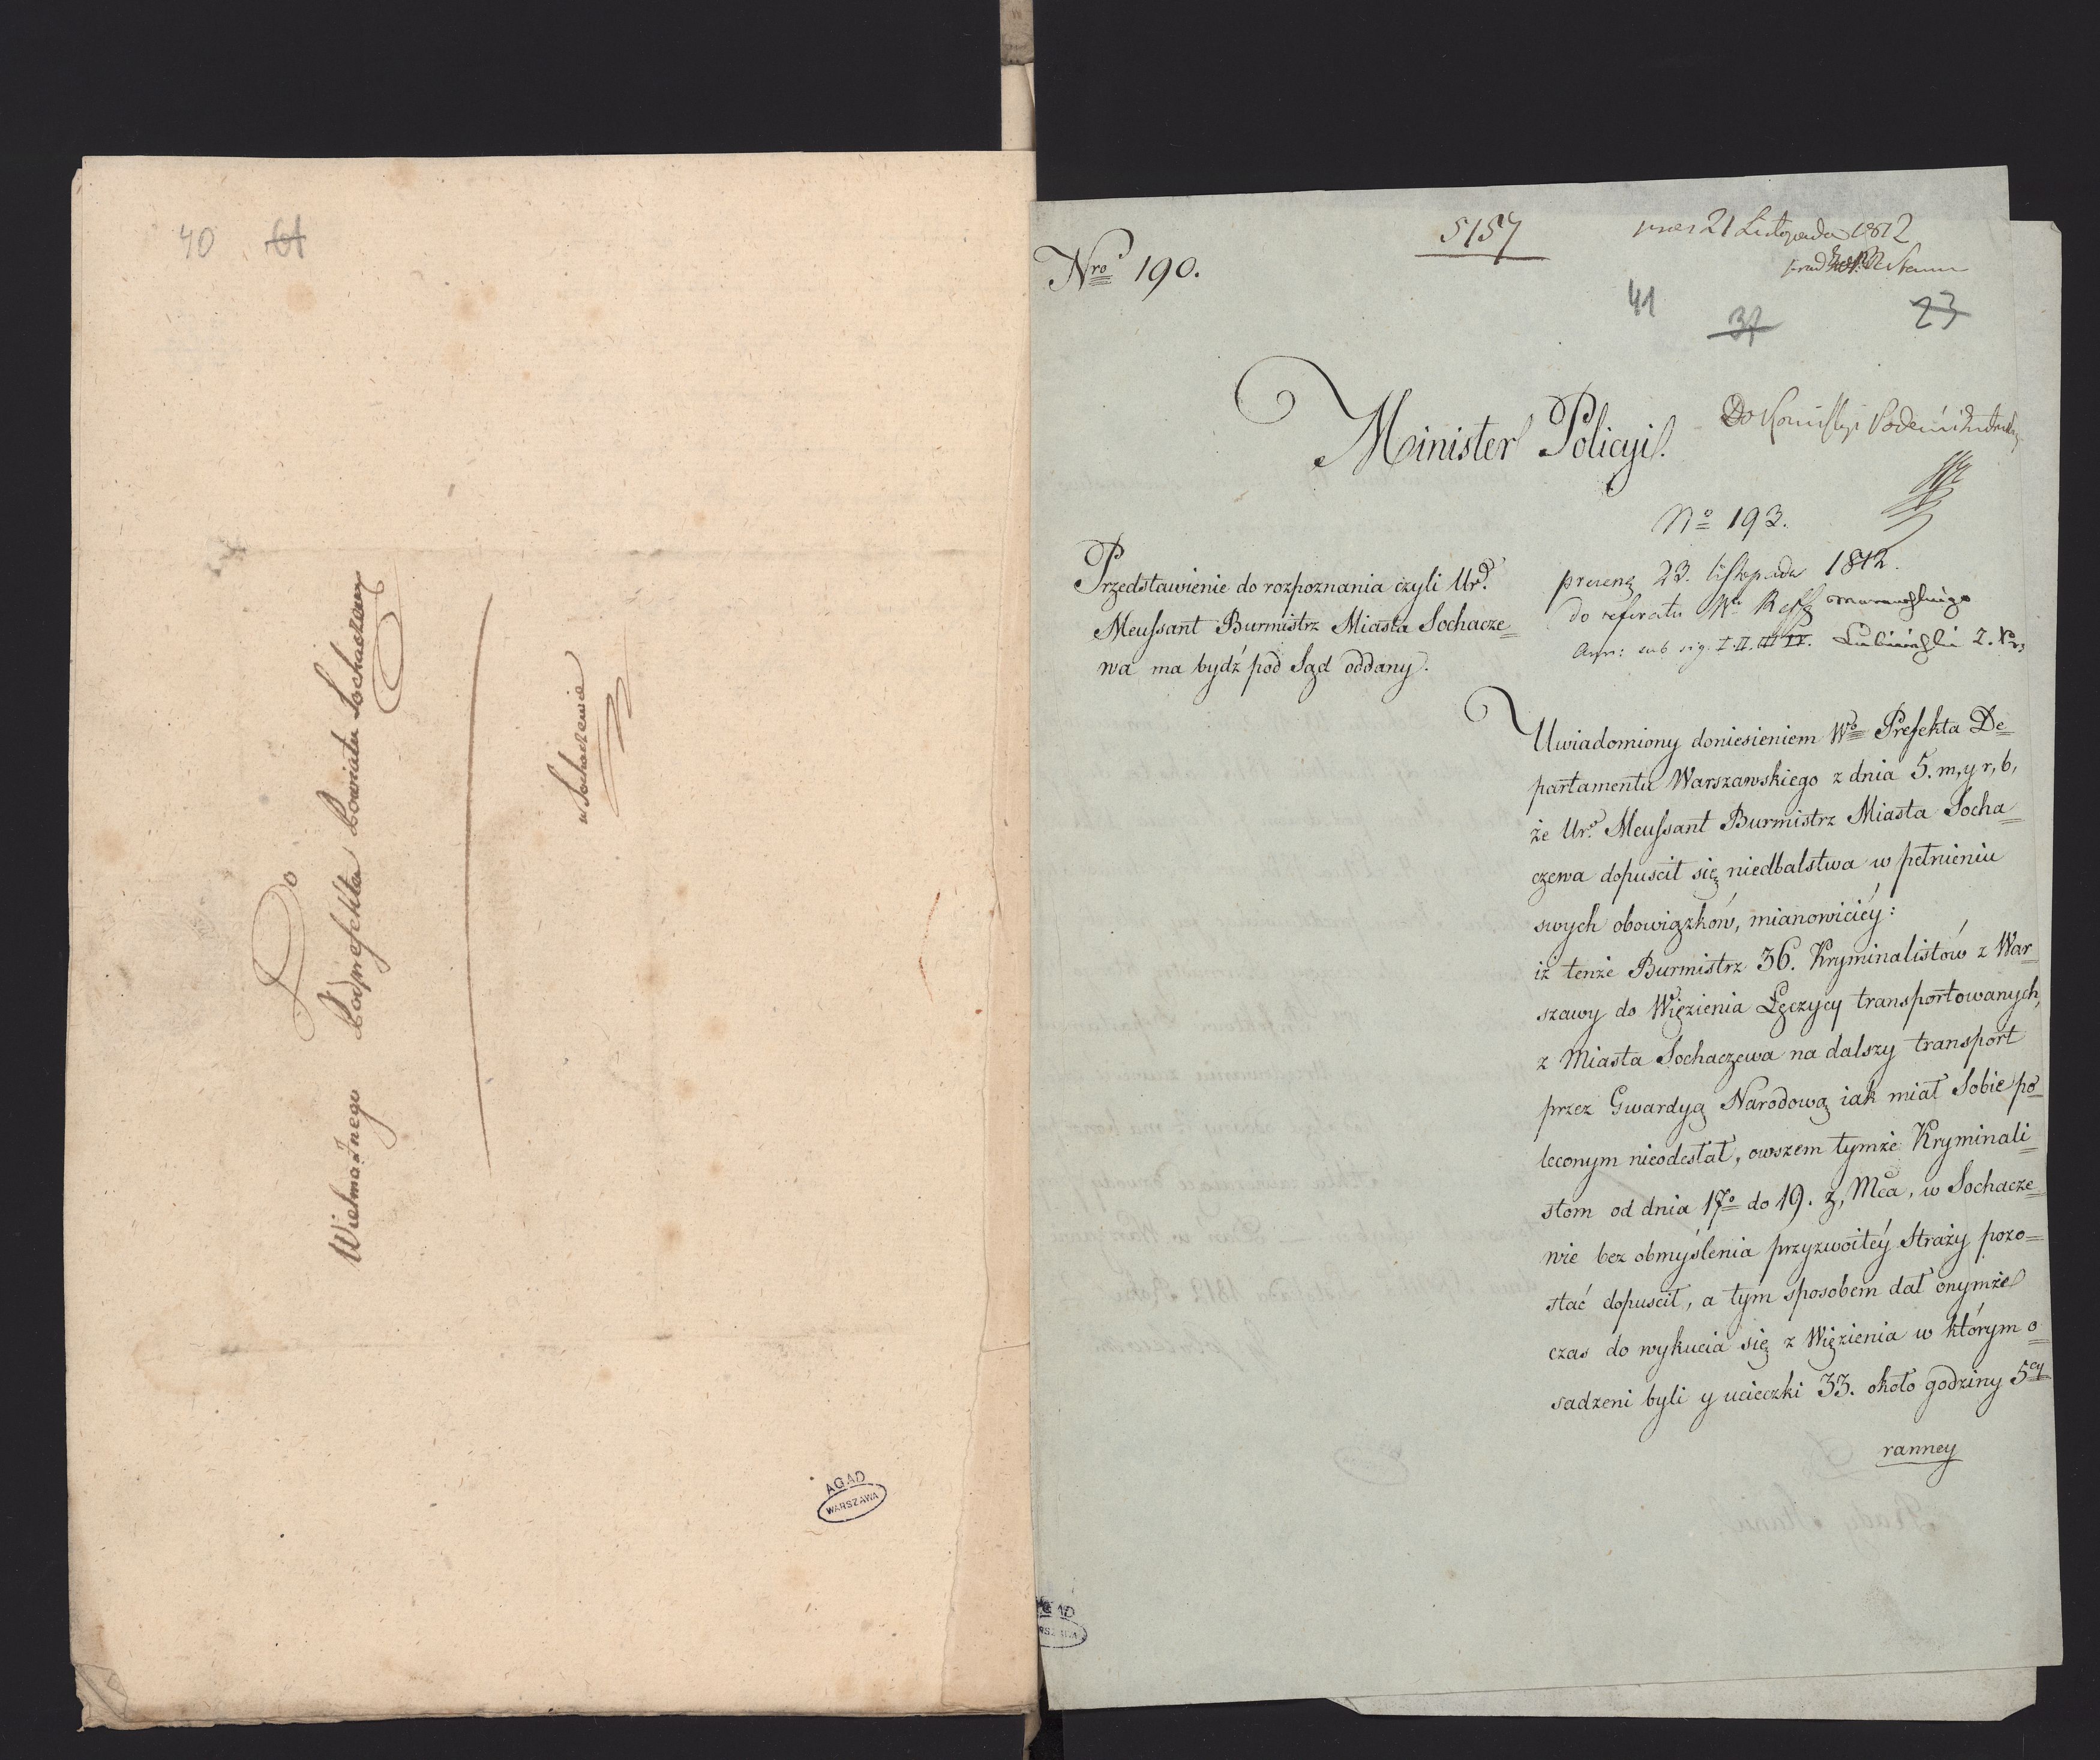 40 61
Do
Wielmożnego Podprefekta Powiatu Sochaczew
w Sochaczewie
AGAD
WARSZAWA
5157
21 Listopada 1812
Nro 190.
41 37 23
Minister Policyi.
Do
No 193.
Przedstawienie do rozpoznania czyli Ur.
Meussant Burmistrz Miasta Sochacze=
wa ma bydź pod Sąd oddany.
23. listopada 1812.
do referatu
sub sig. I. II. III IV. Lubieński
Uwiadomiony doniesieniem Wo Prefekta De=
partamentu Warszawskiego z dnia 5. m, y r, b,
że Ur. Meussant Burmistrz Miasta Socha=
czewa dopuscił się niedbalstwa w pełnieniu
swych obowiązków, mianowiciéy:
iż tenże Burmistrz 36. Kryminalistów z War=
szawy do Więzienia Łęczycy transportowanych,
z Miasta Sochaczewa na dalszy transport
przez Gwardyą Narodową iak miał sobie po=
leconym nieodesłał, owszem tymże Kryminali=
stom od dnia 17o do 19. z, Mca, w Sochacze=
wie bez obmyślenia przyzwoitéy Straży pozo=
stać dopuscił, a tym sposobem dał onymże
czas do wykucia się z Więzienia w którym o=
sadzeni byli y ucieczki 33. około godziny 5ey
ranney